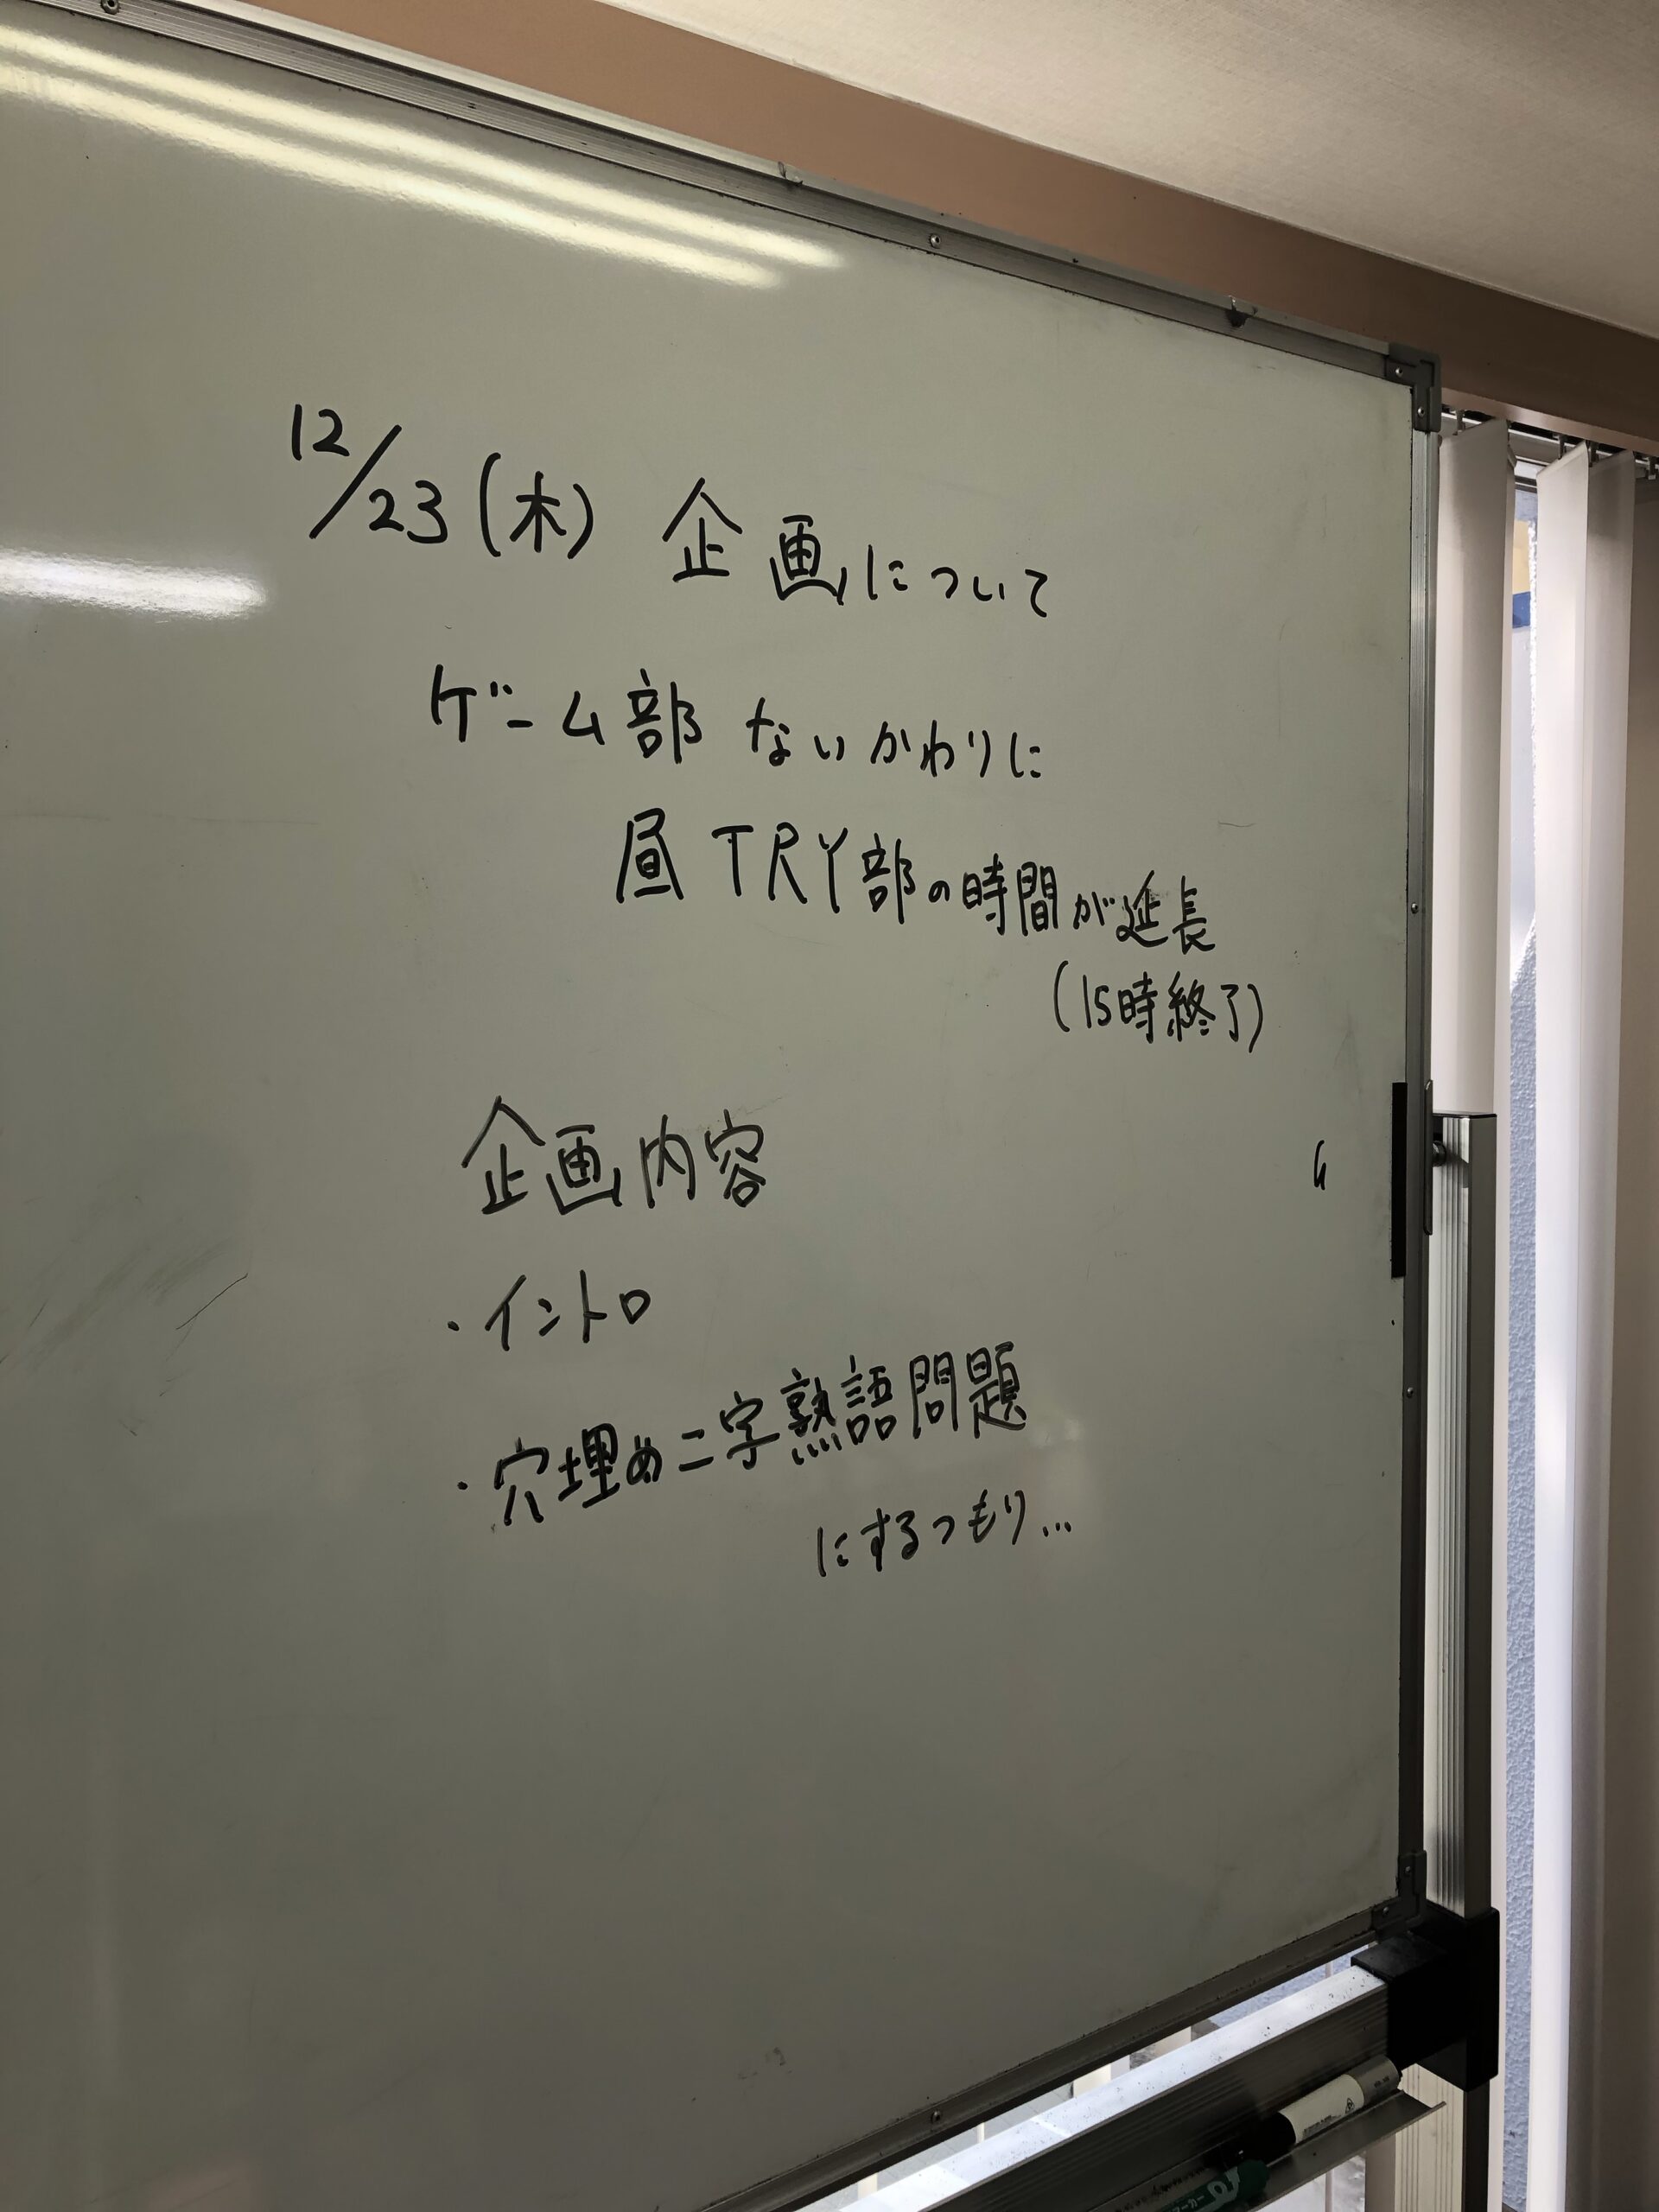 12/23(木) 企画について
ゲーム部 ないかわりに
昼 TRY部の時間が延長
(15時終了)
企画内容
・イントロ
・穴埋め二字熟語問題
にするつもり...